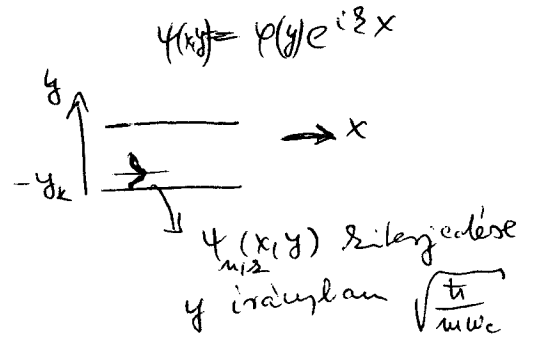 ψ(x,y) = φ(y)e^{ikx}
y
x
-y_k
ψ_{n,k}(x,y) kiterjedése
y irányban √(ħ/(mω_c))